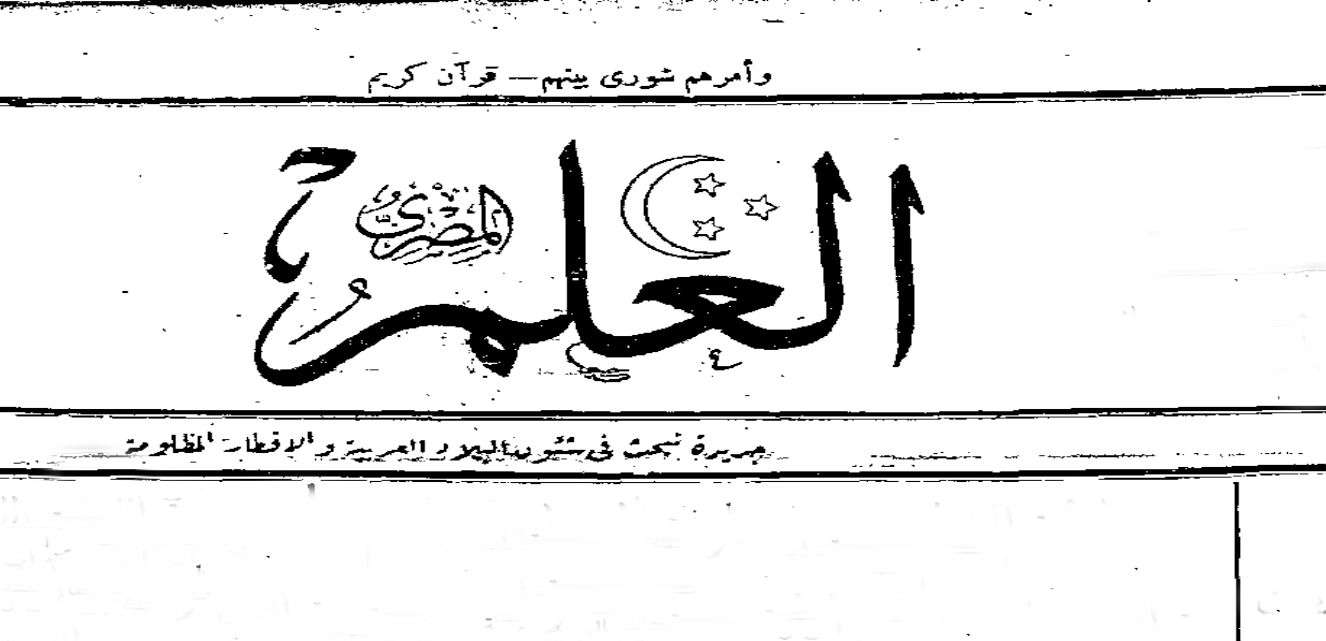 وأمرهم شورى بينهم — قرآن كريم
العلم
المصرى
جريدة تبحث فى شئون البلاد العربية والاقطار المظلومة